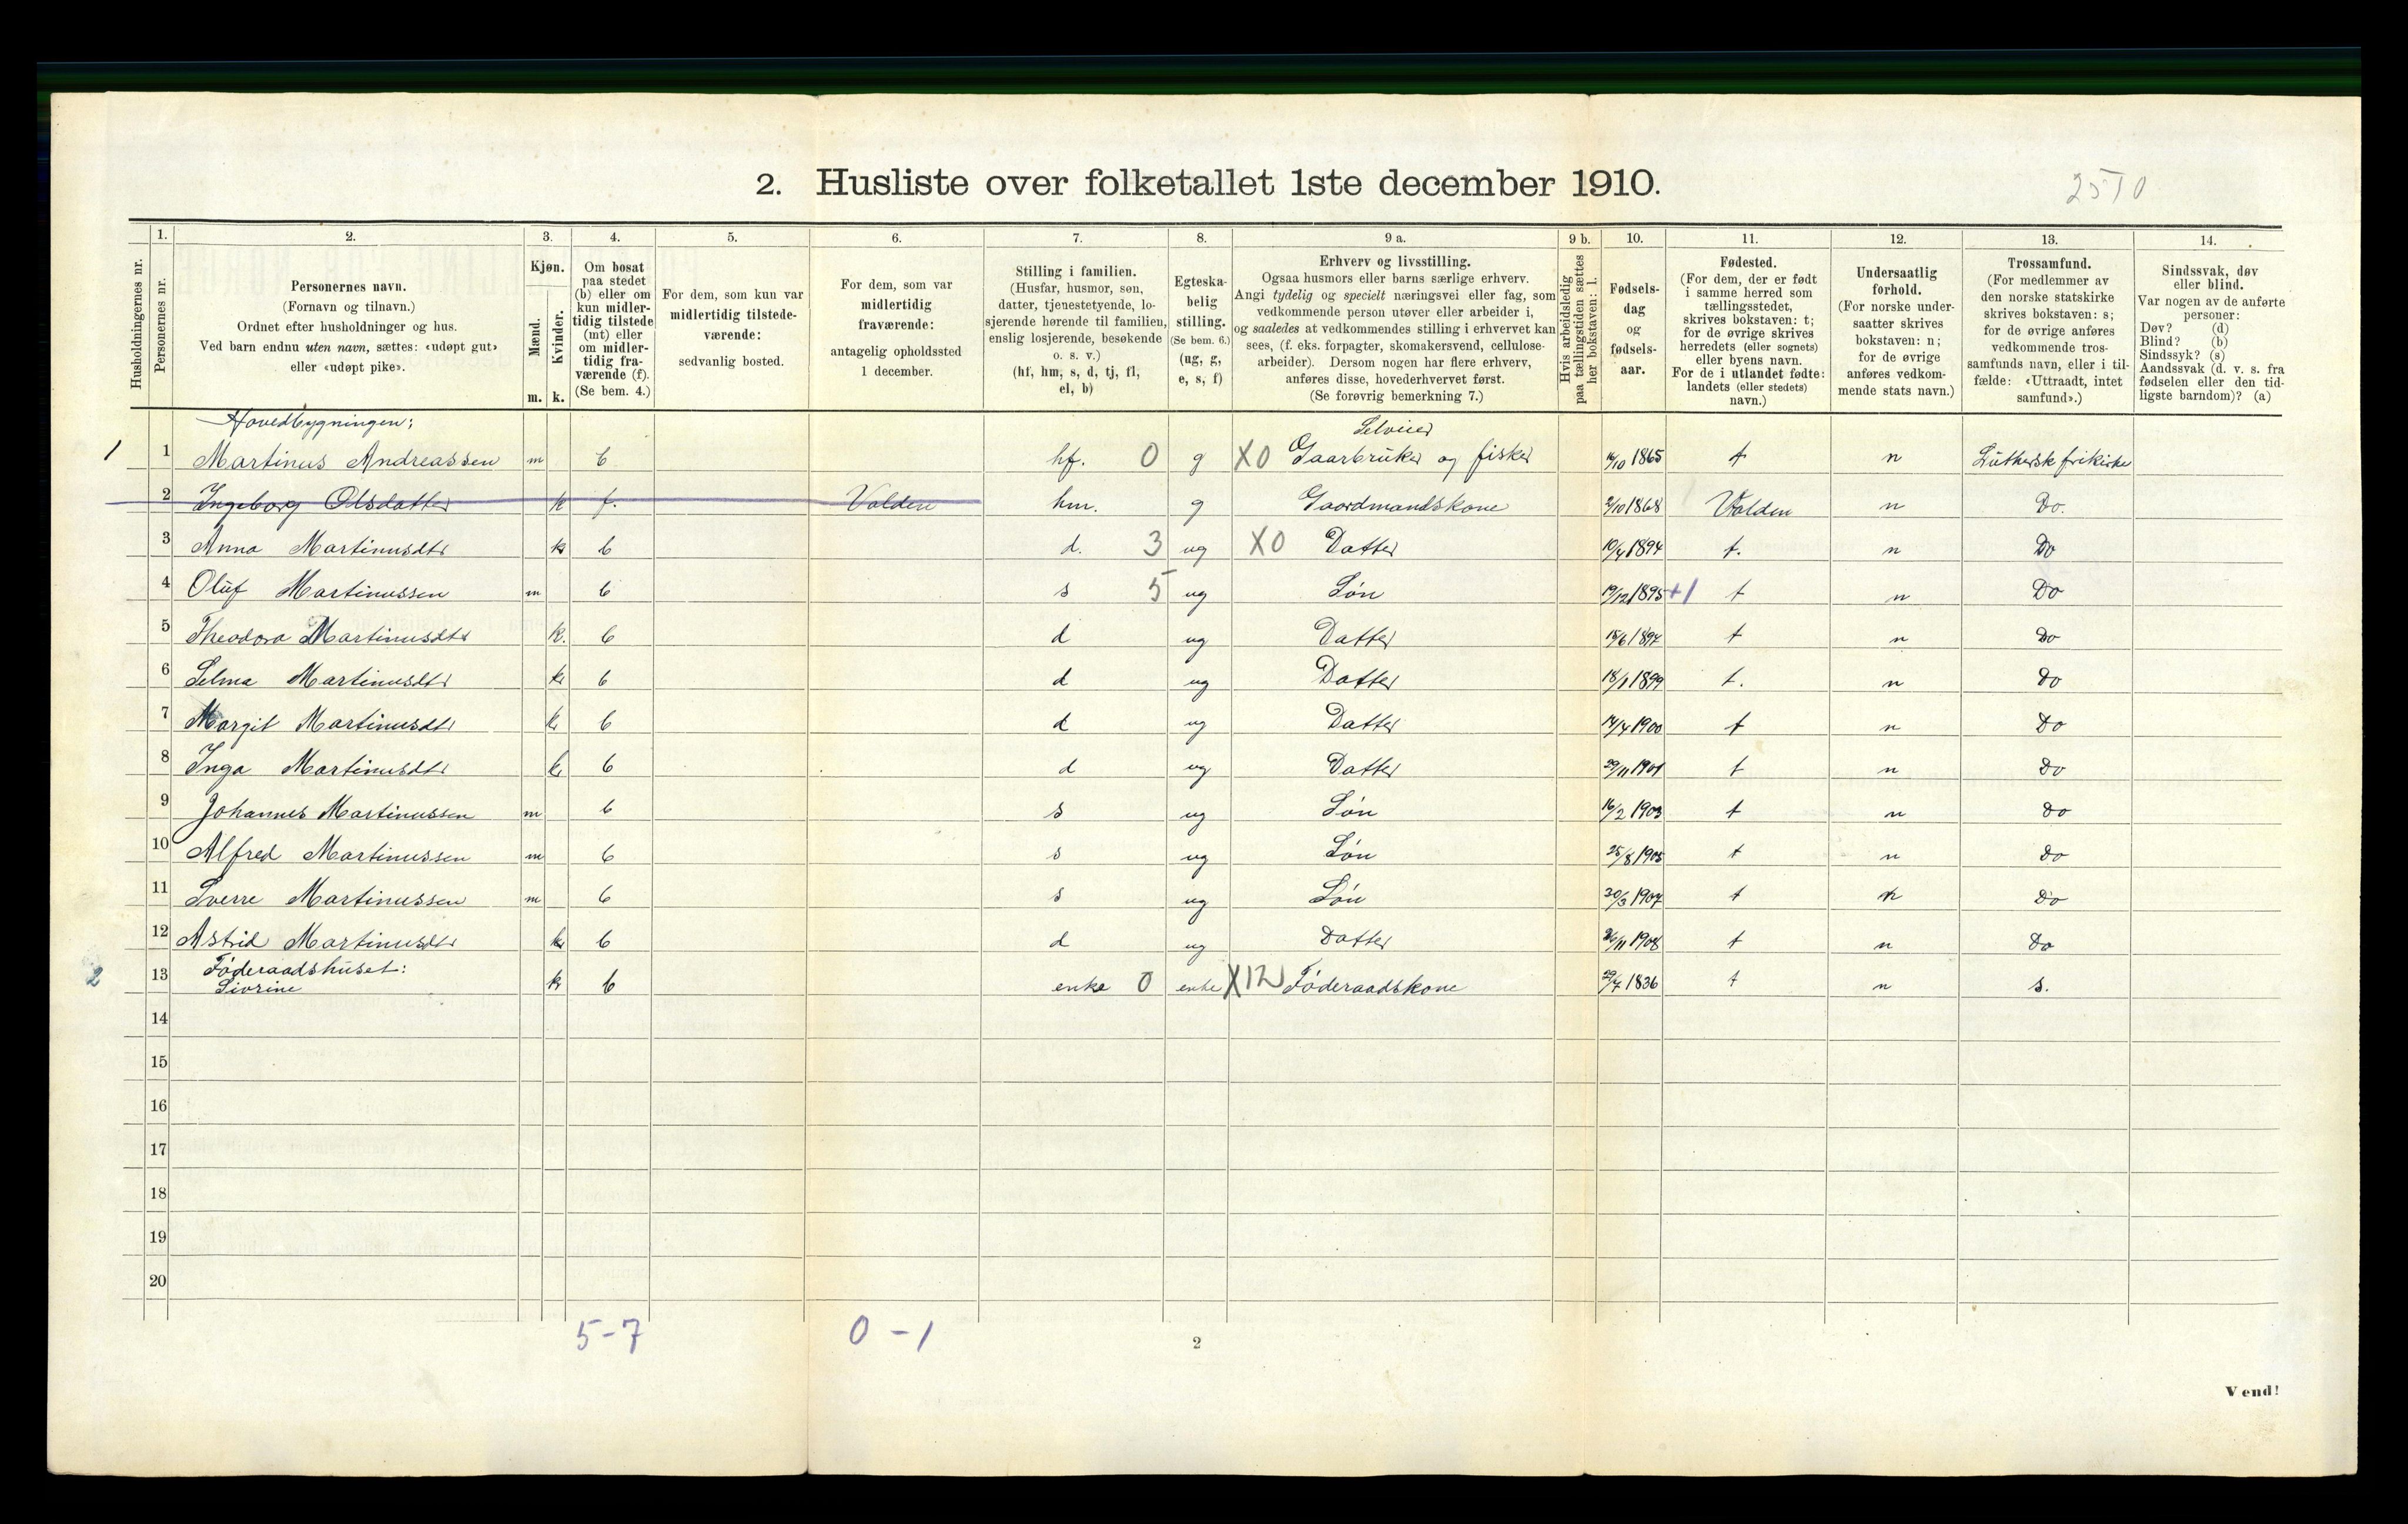 2. Husliste over folketallet 1ste december 1910.
2510
Husholdningernes nr.
1. Personernes nr.
2. Personernes navn.
(Fornavn og tilnavn.)
Ordnet efter husholdninger og hus.
Ved barn endnu uten navn, sættes: «udøpt gut»
eller «udøpt pike».
3. Kjøn.
Mænd. m.
Kvinder. k.
4. Om bosat
paa stedet
(b) eller om
kun midler-
tidig tilstede
(mt) eller
om midler-
tidig fra-
værende (f).
(Se bem. 4.)
5. For dem, som kun var
midlertidig tilstede-
værende:
sedvanlig bosted.
6. For dem, som var
midlertidig
fraværende:
antagelig opholdssted
1 december.
7. Stilling i familien.
(Husfar, husmor, søn,
datter, tjenestetyende, lo-
sjerende hørende til familien,
enslig losjerende, besøkende
o. s. v.)
(hf, hm, s, d, tj, fl,
el, b)
8. Egteska-
belig
stilling.
(Se bem. 6.)
(ug, g,
e, s, f)
9 a. Erhverv og livsstilling.
Ogsaa husmors eller barns særlige erhverv.
Angi tydelig og specielt næringsvei eller fag, som
vedkommende person utøver eller arbeider i,
og saaledes at vedkommendes stilling i erhvervet kan
sees, (f. eks. forpagter, skomakersvend, cellulose-
arbeider). Dersom nogen har flere erhverv,
anføres disse, hovederhvervet først.
(Se forøvrig bemerkning 7.)
9 b. Hvis arbeidsledig
paa tællingstiden sættes
her bokstaven: l.
10. Fødsels-
dag
og
fødsels-
aar.
11. Fødested.
(For dem, der er født
i samme herred som
tællingsstedet,
skrives bokstaven: t;
for de øvrige skrives
herredets (eller sognets)
eller byens navn.
For de i utlandet fødte:
landets (eller stedets)
navn.)
12. Undersaatlig
forhold.
(For norske under-
saatter skrives
bokstaven: n;
for de øvrige
anføres vedkom-
mende stats navn.)
13. Trossamfund.
(For medlemmer av
den norske statskirke
skrives bokstaven: s;
for de øvrige anføres
vedkommende tros-
samfunds navn, eller i til-
fælde: «Uttraadt, intet
samfund».)
14. Sindssvak, døv
eller blind.
Var nogen av de anførte
personer:
Døv? (d)
Blind? (b)
Sindssyk? (s)
Aandssvak (d. v. s. fra
fødselen eller den tid-
ligste barndom)? (a)
Hovedbygningen: Selveier
1 1 Martinus Andreassen m b hf. 0 g X0 Gaarbruker og fisker 1865 t n Luthersk frikirke
2 Ingeborg Olsdatter k f. Valden hm. g Gaardmandskone 2/10 1868 Valden n Do.
3 Anna Martinusdtr k b d. 3 ug X0 Datter 10/4 1894 t. n Do
4 Oluf Martinussen m b s 5 ug Søn 19/12 1895 +1 t n Do
5 Theodora Martinusdtr k. b d ug Datter 15/6 1897 t n Do
6 Selma Martinusdtr k b d ug Datter 18/1 1899 t. n Do
7 Margit Martinusdtr k b d ug Datter 14/4 1900 t n Do
8 Inga Martinusdtr k b d ug Datter 29/11 1901 t n Do
9 Johannes Martinussen m b s ug Søn 16/2 1903 t n Do
10 Alfred Martinussen m b s ug Søn 25/8 1905 t n Do
11 Sverre Martinussen m b s ug Søn 30/3 1907 t n Do
12 Astrid Martinusdtr k b d ug Datter 26/11 1908 t n Do
Føderaadshuset:
2 13 Sivrine k b enke 0 enke X12 Føderaadskone 29/7 1836 t n s.
14
15
16
17
18
19
20
5-7 0-1
2
Vend!